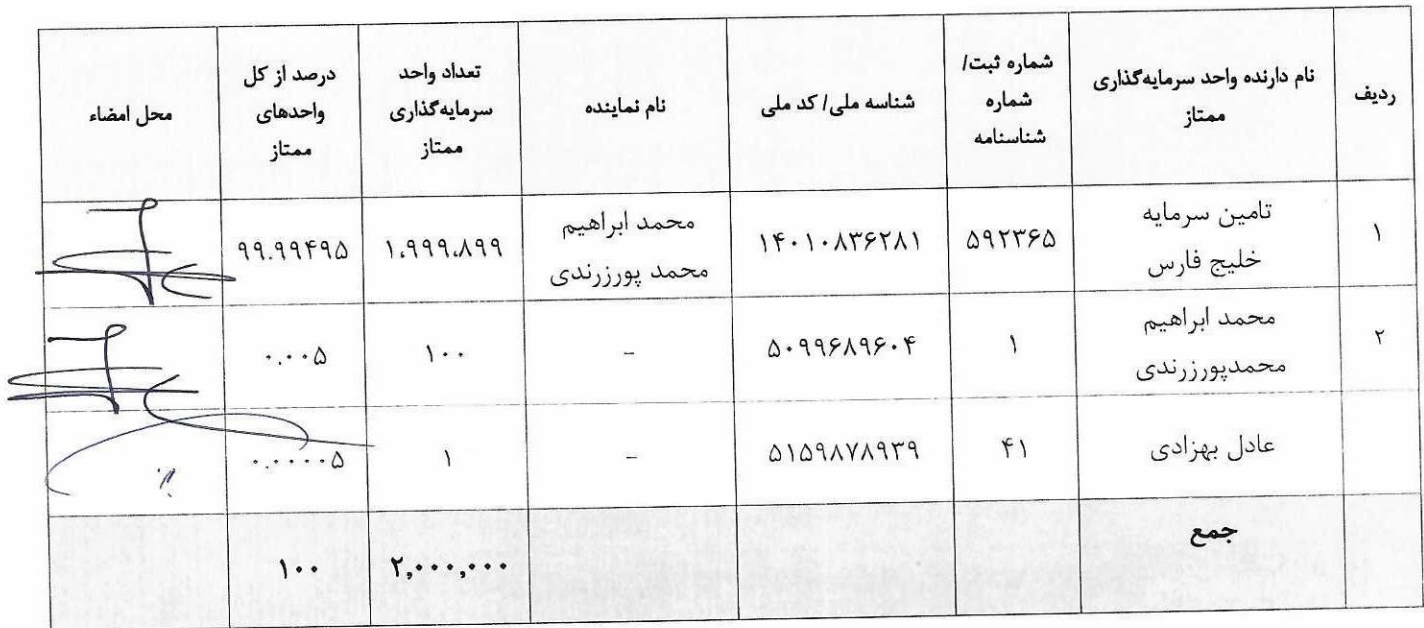 ردیف
نام دارنده واحد سرمایه‌گذاری
ممتاز
شماره ثبت/
شماره
شناسنامه
شناسه ملی/ کد ملی
نام نماینده
تعداد واحد
سرمایه‌گذاری
ممتاز
درصد از کل
واحدهای
ممتاز
محل امضاء
۱
تامین سرمایه
خلیج فارس
۵۹۲۳۶۵
۱۴۰۱۰۸۳۶۲۸۱
محمد ابراهیم
محمد پورزرندی
۱،۹۹۹،۸۹۹
۹۹.۹۹۴۹۵
۲
محمد ابراهیم
محمدپورزرندی
۱
۵۰۹۹۶۸۹۶۰۴
-
۱۰۰
۰.۰۰۵
عادل بهزادی
۴۱
۵۱۵۹۸۷۸۹۳۹
-
۱
۰.۰۰۰۰۵
جمع
۲,۰۰۰,۰۰۰
۱۰۰